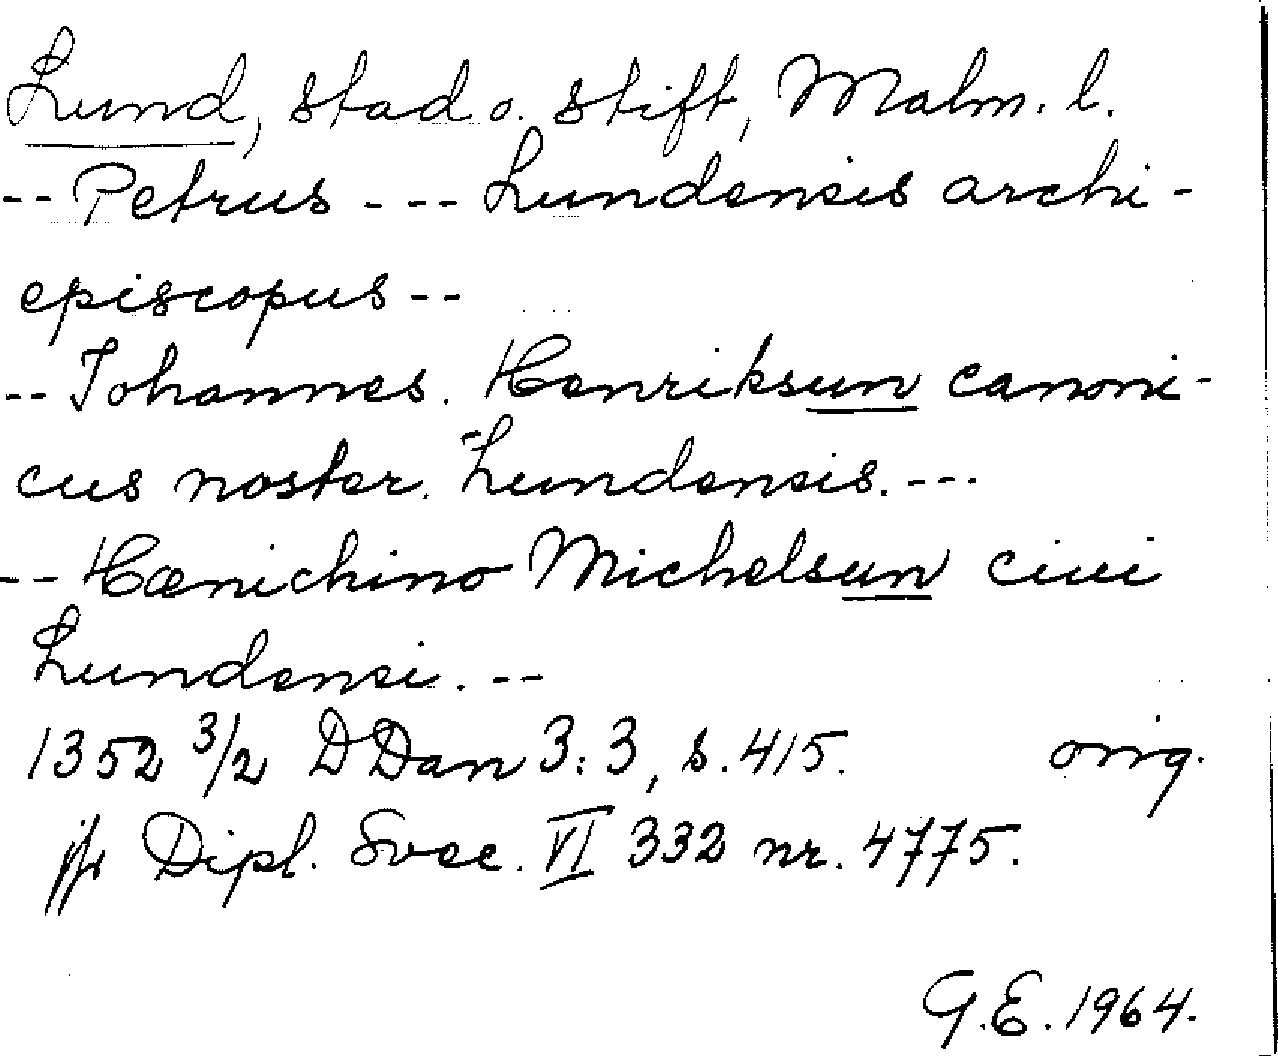 Lund, stad o. stift, Malm. l.
-- Petrus --- Lundensis archi-
episcopus --
-- Johannes. Henriksun canoni-
cus noster. Lundensis. ---
-- Hænichino Michelsun ciui
Lundensi. --
1352 3/2 DDan 3:3, s. 415. orig.
jfr Dipl. Svec. VI 332 nr. 4775.
G.E. 1964.